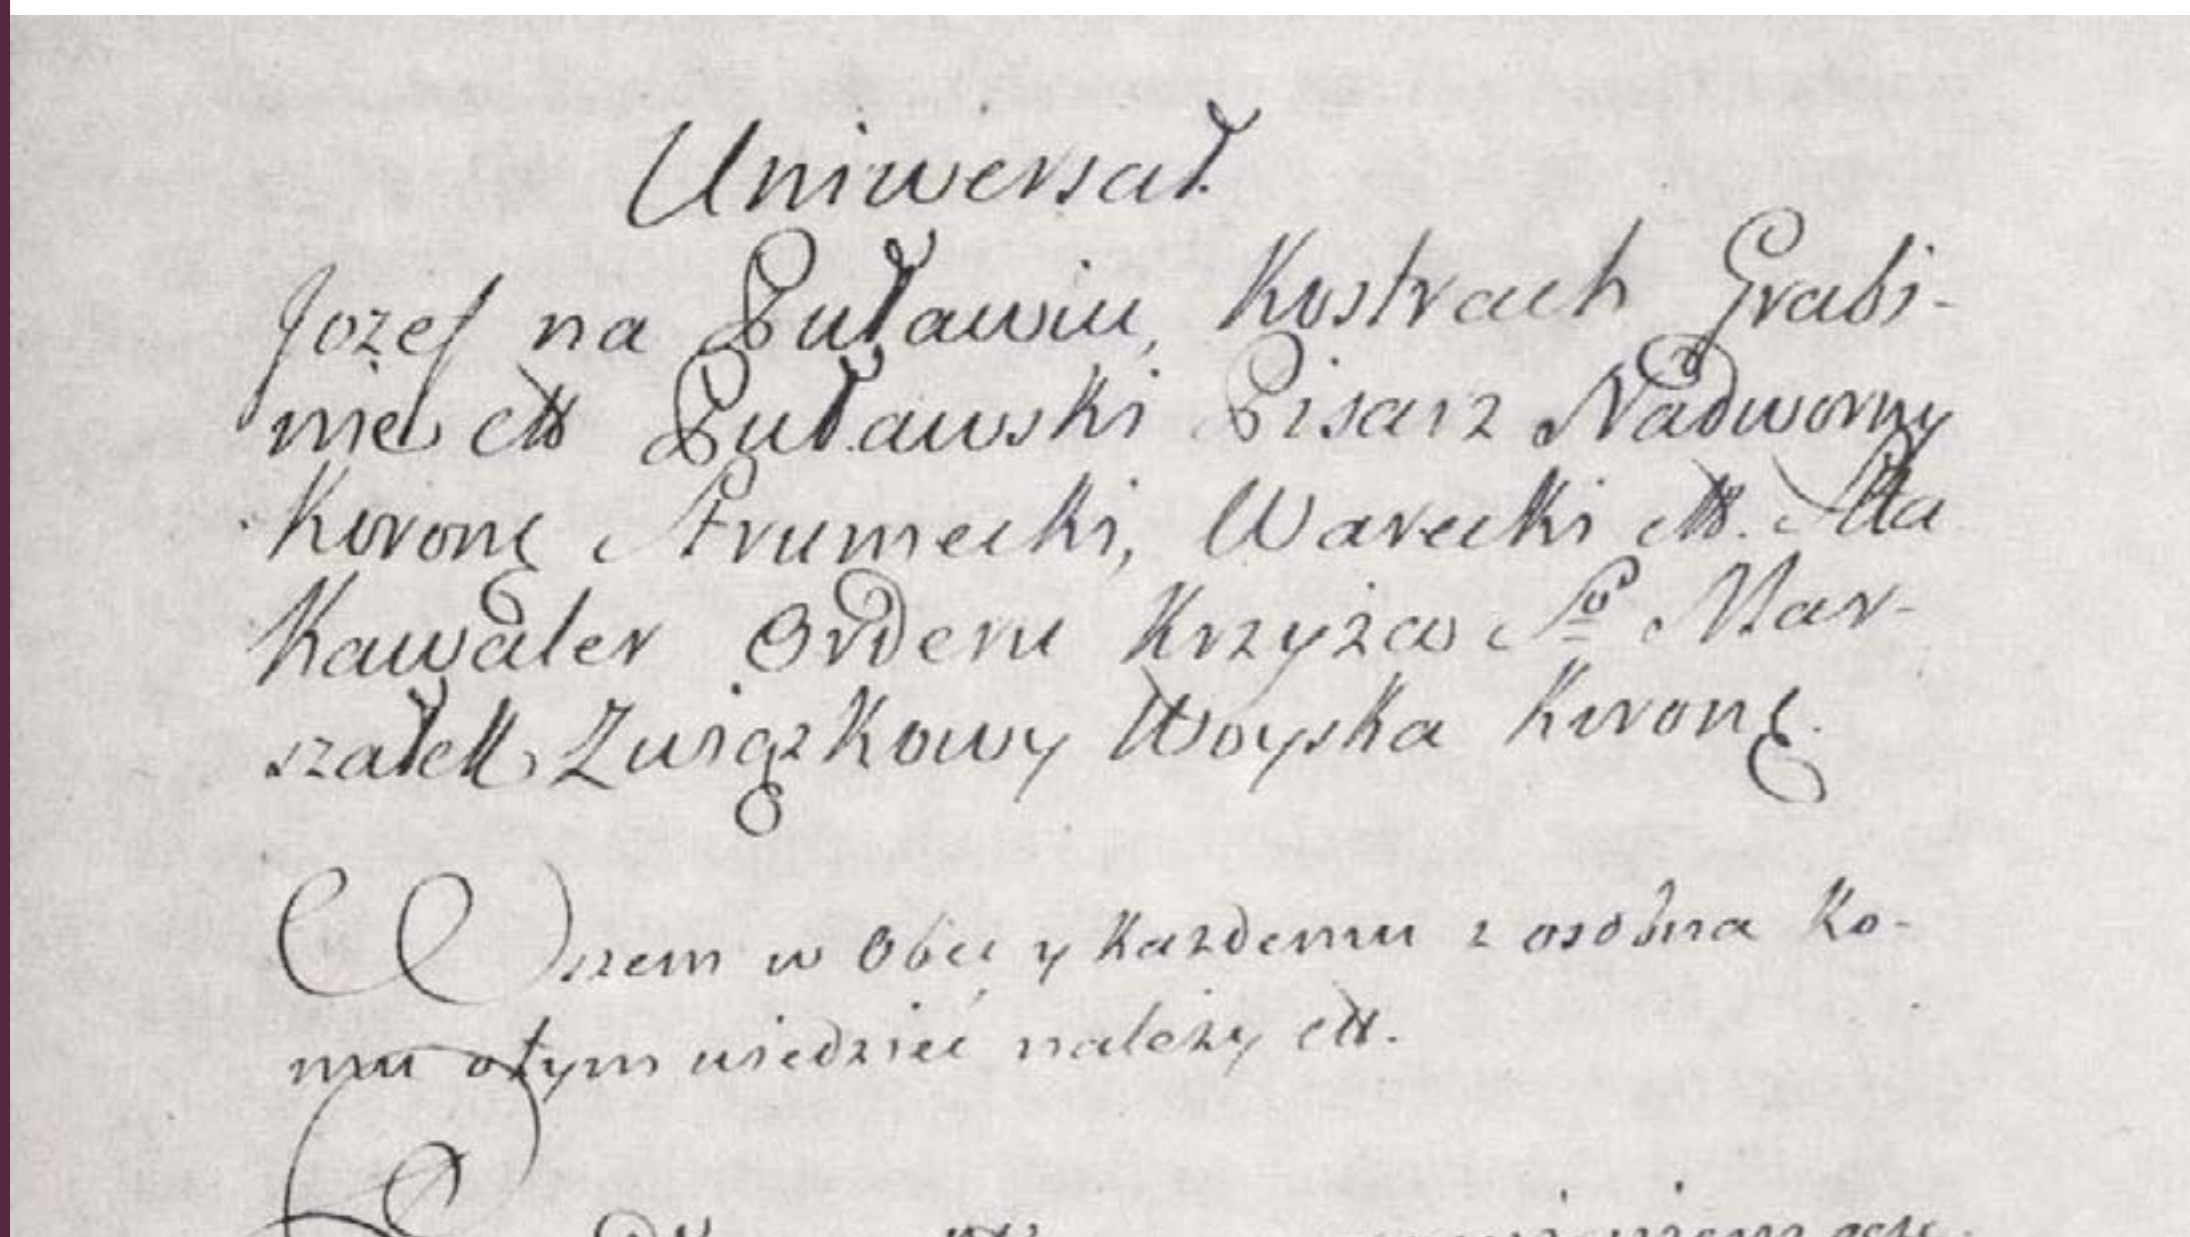 Uniwersał.
Jozef na Pułaziu, Kostrach Grabi-
nie ett Puławski Pisarz Nadworny
Koronę Strumecki, Warecki ett. Stta
Kawaler Orderu Krzyża So Mar-
szałek Związkowy Woyska Koronę.
Wszem w Obec y Każdemu z osobna Ko-
mu otym wiedzieć należy ett.